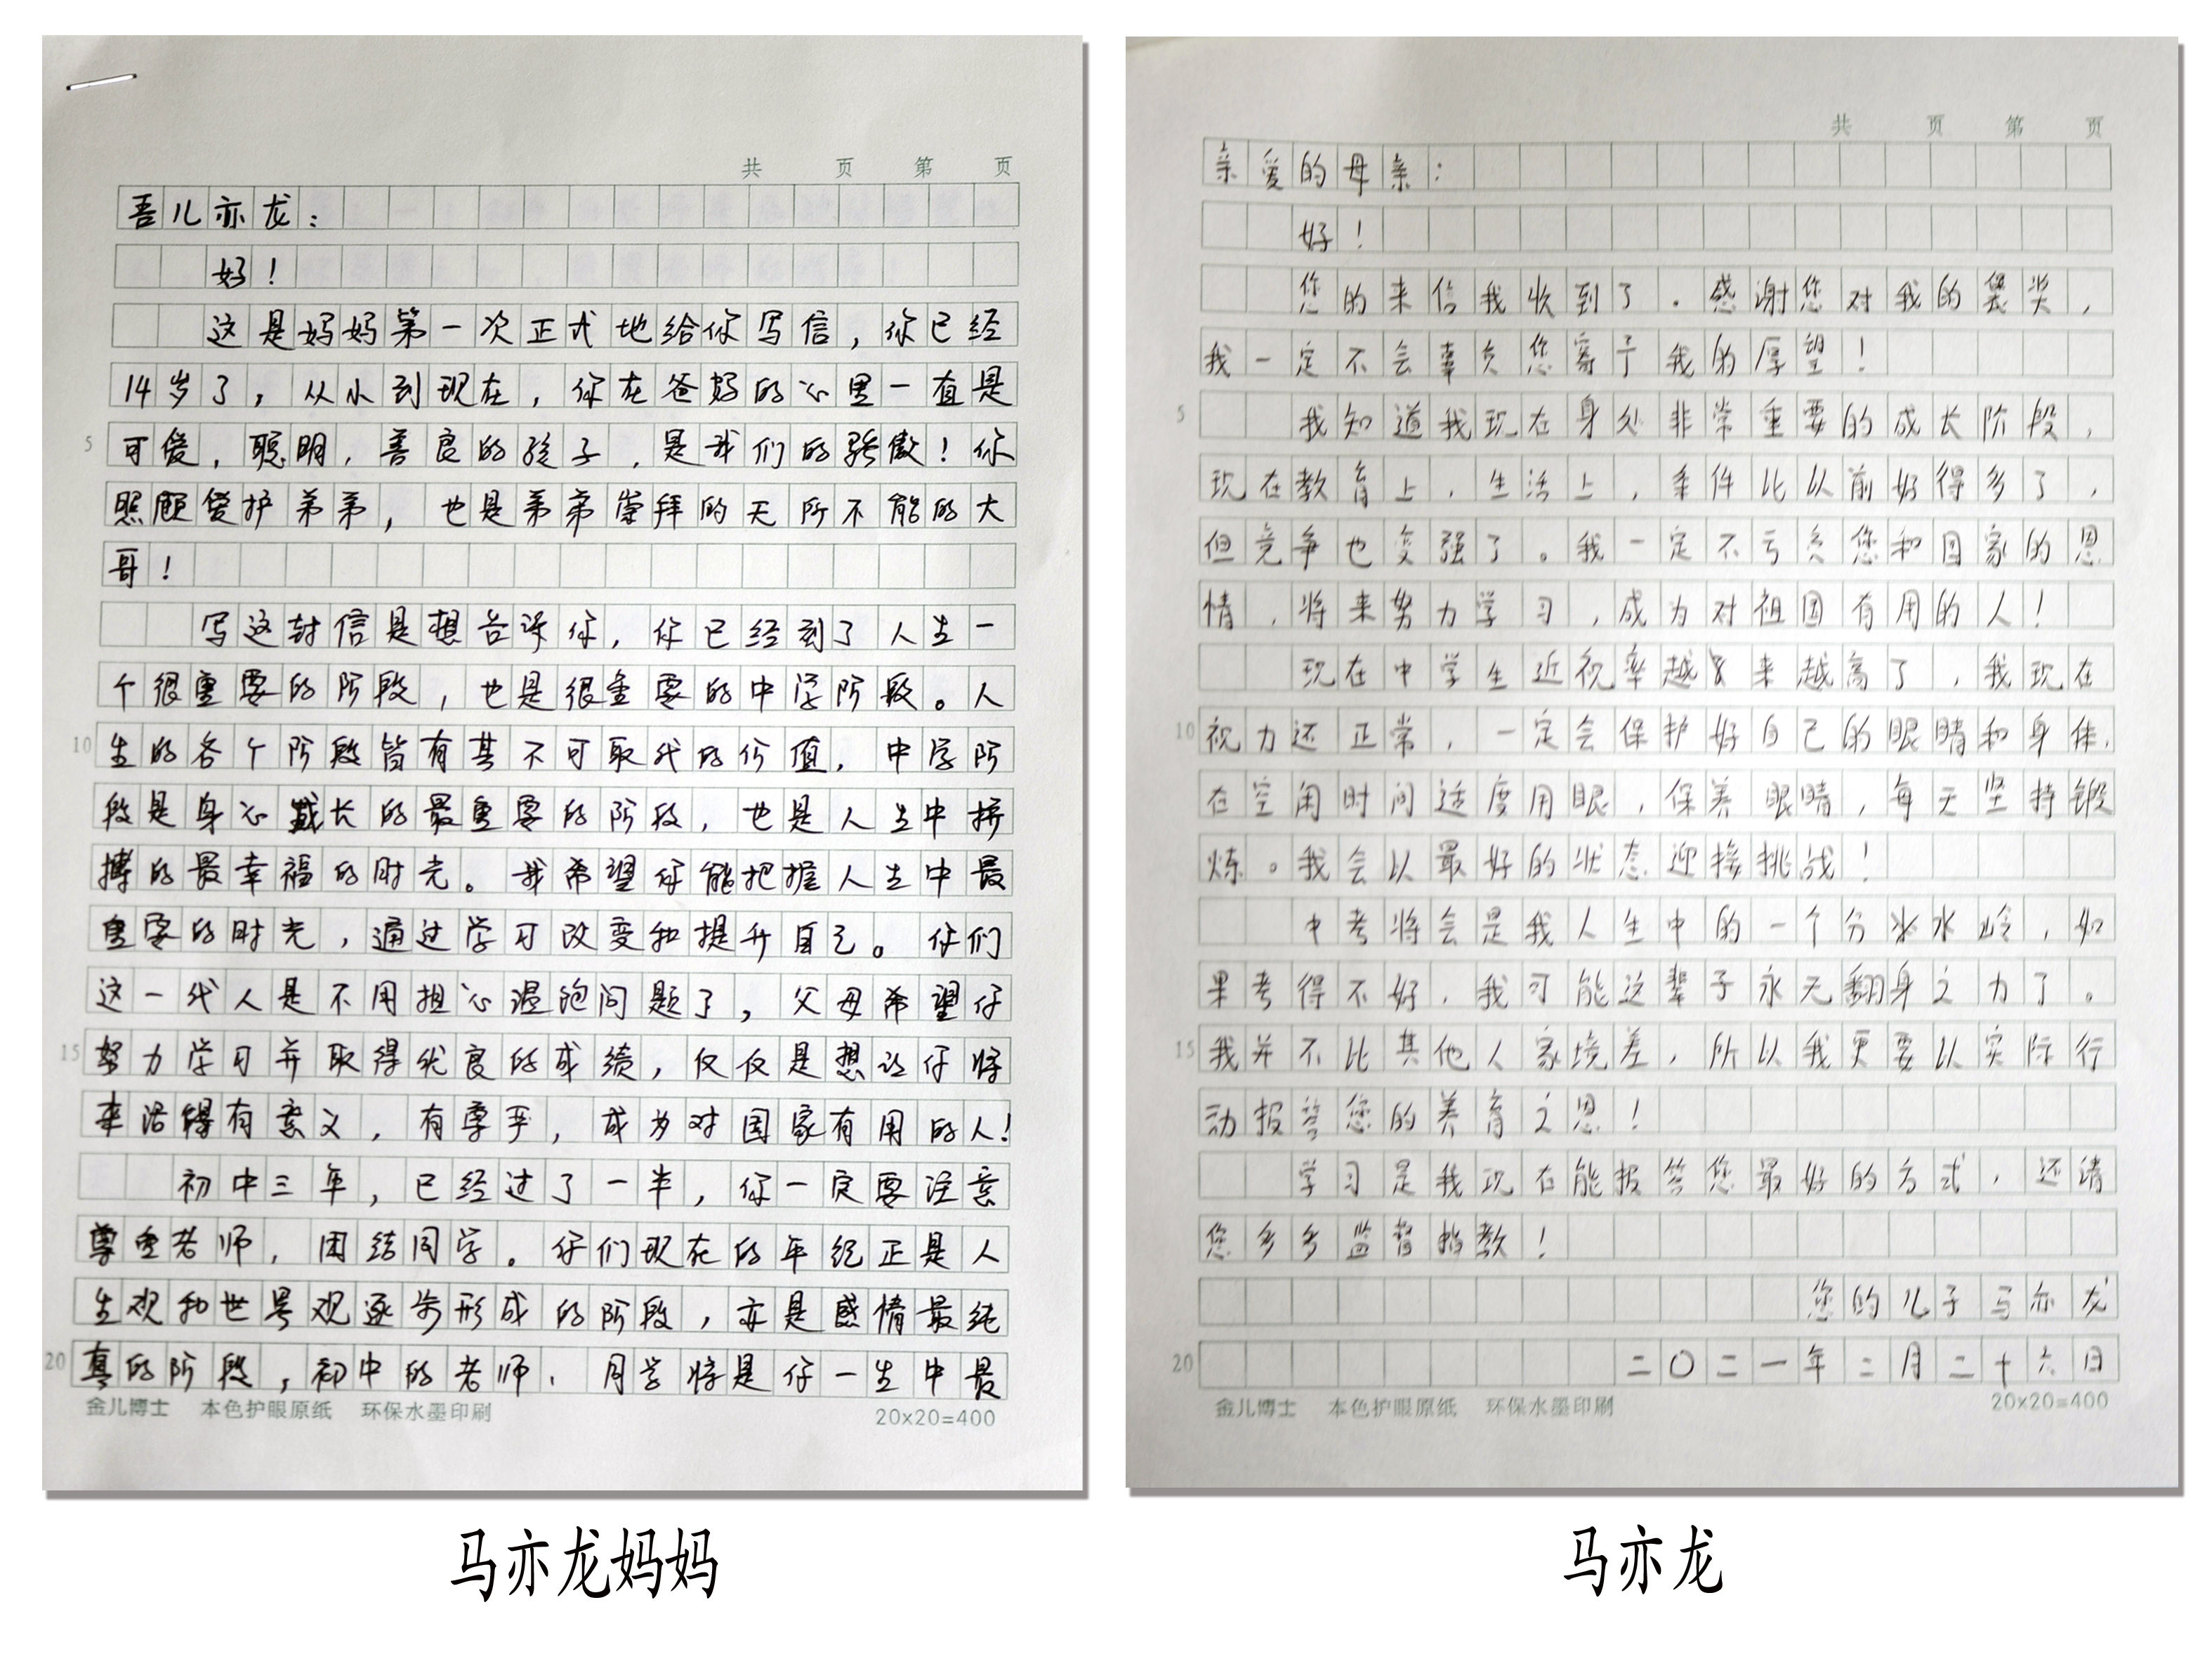 共 页 第 页
吾儿亦龙：
好！
这是妈妈第一次正式地给你写信，你已经
14岁了，从小到现在，你在爸妈的心里一直是
5 可爱，聪明，善良的孩子，是我们的骄傲！你
照顾爱护弟弟，也是弟弟崇拜的无所不能的大
哥！
写这封信是想告诉你，你已经到了人生一
个很重要的阶段，也是很重要的中学阶段。人
10 生的各个阶段皆有其不可取代的价值，中学阶
段是身心成长的最重要的阶段，也是人生中拼
搏的最幸福的时光。我希望你能把握人生中最
重要的时光，通过学习改变和提升自己。你们
这一代人是不用担心温饱问题了，父母希望你
15 努力学习并取得优良的成绩，仅仅是想让你将
来活得有意义，有尊严，成为对国家有用的人！
初中三年，已经过了一半，你一定要注意
尊重老师，团结同学。你们现在的年纪正是人
生观和世界观逐步形成的阶段，亦是感情最纯
20 真的阶段，初中的老师、同学将是你一生中最
金儿博士 本色护眼原纸 环保水墨印刷 20x20=400
马亦龙妈妈
共 页 第 页
亲爱的母亲：
好！
您的来信我收到了。感谢您对我的褒奖，
我一定不会辜负您寄于我的厚望！
5 我知道我现在身处非常重要的成长阶段，
现在教育上，生活上，条件比以前好得多了，
但竞争也变强了。我一定不亏负您和国家的恩
情，将来努力学习，成为对祖国有用的人！
现在中学生近视率越来越高了，我现在
10 视力还正常，一定会保护好自己的眼睛和身体，
在空闲时间适度用眼，保养眼睛，每天坚持锻
炼。我会以最好的状态迎接挑战！
中考将会是我人生中的一个分水岭，如
果考得不好，我可能这辈子永无翻身之力了。
15 我并不比其他人家境差，所以我更要以实际行
动报答您的养育之恩！
学习是我现在能报答您最好的方式，还请
您多多监督指教！
您的儿子马亦龙
20 二〇二一年二月二十六日
金儿博士 本色护眼原纸 环保水墨印刷 20x20=400
马亦龙